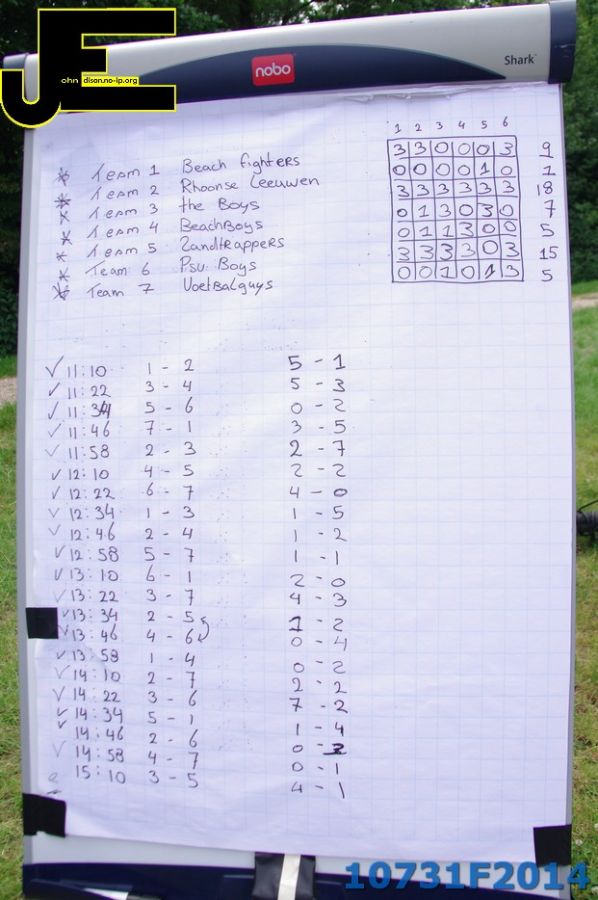 JE
John disan.no-ip.org
nobo
Shark
1 2 3 4 5 6
* Team 1 Beach fighters 3 3 0 0 0 3 9
* Team 2 Rhoonse Leeuwen 0 0 0 0 1 0 1
* Team 3 the Boys 3 3 3 3 3 3 18
* Team 4 BeachBoys 0 1 3 0 3 0 7
* Team 5 Zandtrappers 0 1 1 3 0 0 5
* Team 6 Psu Boys 3 3 3 3 0 3 15
* Team 7 Voetbalguys 0 0 1 0 1 3 5
✓ 11:10 1 - 2 5 - 1
✓ 11:22 3 - 4 5 - 3
✓ 11:34 5 - 6 0 - 2
✓ 11:46 7 - 1 3 - 5
✓ 11:58 2 - 3 2 - 7
✓ 12:10 4 - 5 2 - 2
✓ 12:22 6 - 7 4 - 0
✓ 12:34 1 - 3 1 - 5
✓ 12:46 2 - 4 1 - 2
✓ 12:58 5 - 7 1 - 1
✓ 13:10 6 - 1 2 - 0
✓ 13:22 3 - 7 4 - 3
✓ 13:34 2 - 5 1 - 2
✓ 13:46 4 - 6 0 - 4
✓ 13:58 1 - 4 0 - 2
✓ 14:10 2 - 7 2 - 2
✓ 14:22 3 - 6 7 - 2
✓ 14:34 5 - 1 1 - 4
✓ 14:46 2 - 6 0 -
✓ 14:58 4 - 7 0 - 1
15:10 3 - 5 4 - 1
10731F2014